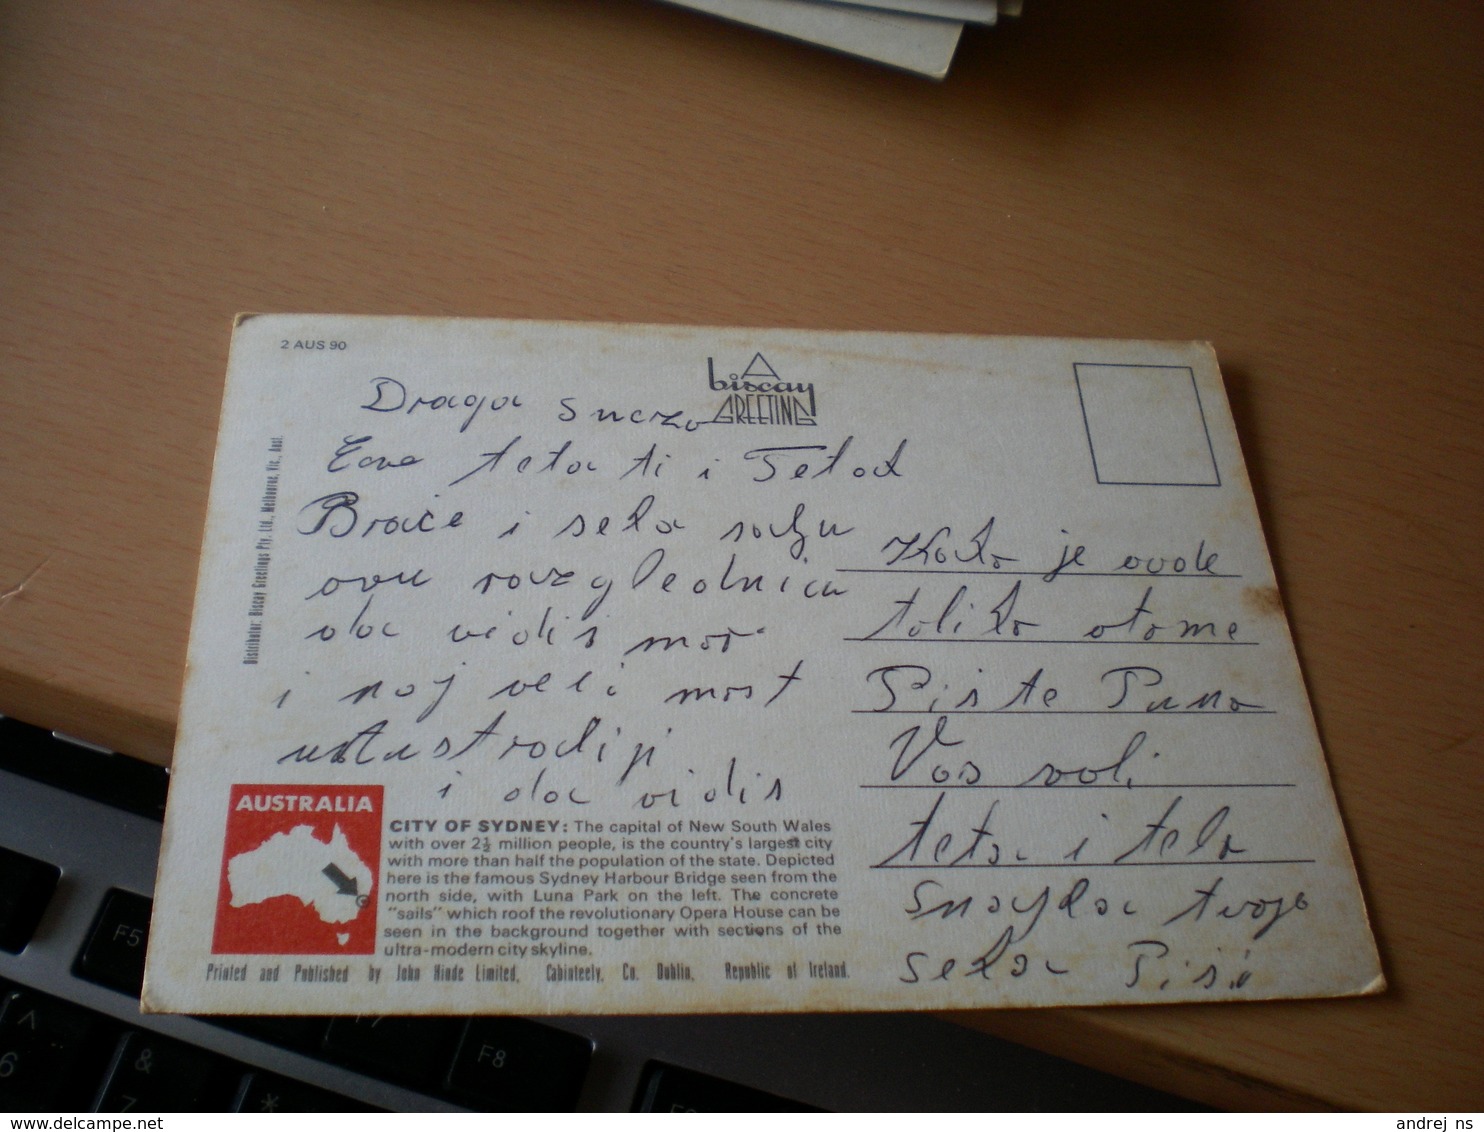 2 AUS 90
A
biscay
GREETING
Draga
teta ti i Tetak
Brace i seka
ovu razglednicu
da vidiš
i naj veći most
i da vidis
Kako je ovde
toliko otome
Pišite Puno
Vas voli
teta i teka
tvoja
seka
Distributor: Biscay Greetings Pty. Ltd., Melbourne, Vic., Aust.
AUSTRALIA
CITY OF SYDNEY: The capital of New South Wales
with over 2½ million people, is the country's largest city
with more than half the population of the state. Depicted
here is the famous Sydney Harbour Bridge seen from the
north side, with Luna Park on the left. The concrete
"sails" which roof the revolutionary Opera House can be
seen in the background together with sections of the
ultra-modern city skyline.
Printed and Published by John Hinde Limited, Cabinteely, Co. Dublin, Republic of Ireland.
F5
F7
F8
^
6
&
7
*
andrej_ns
delcampe.net